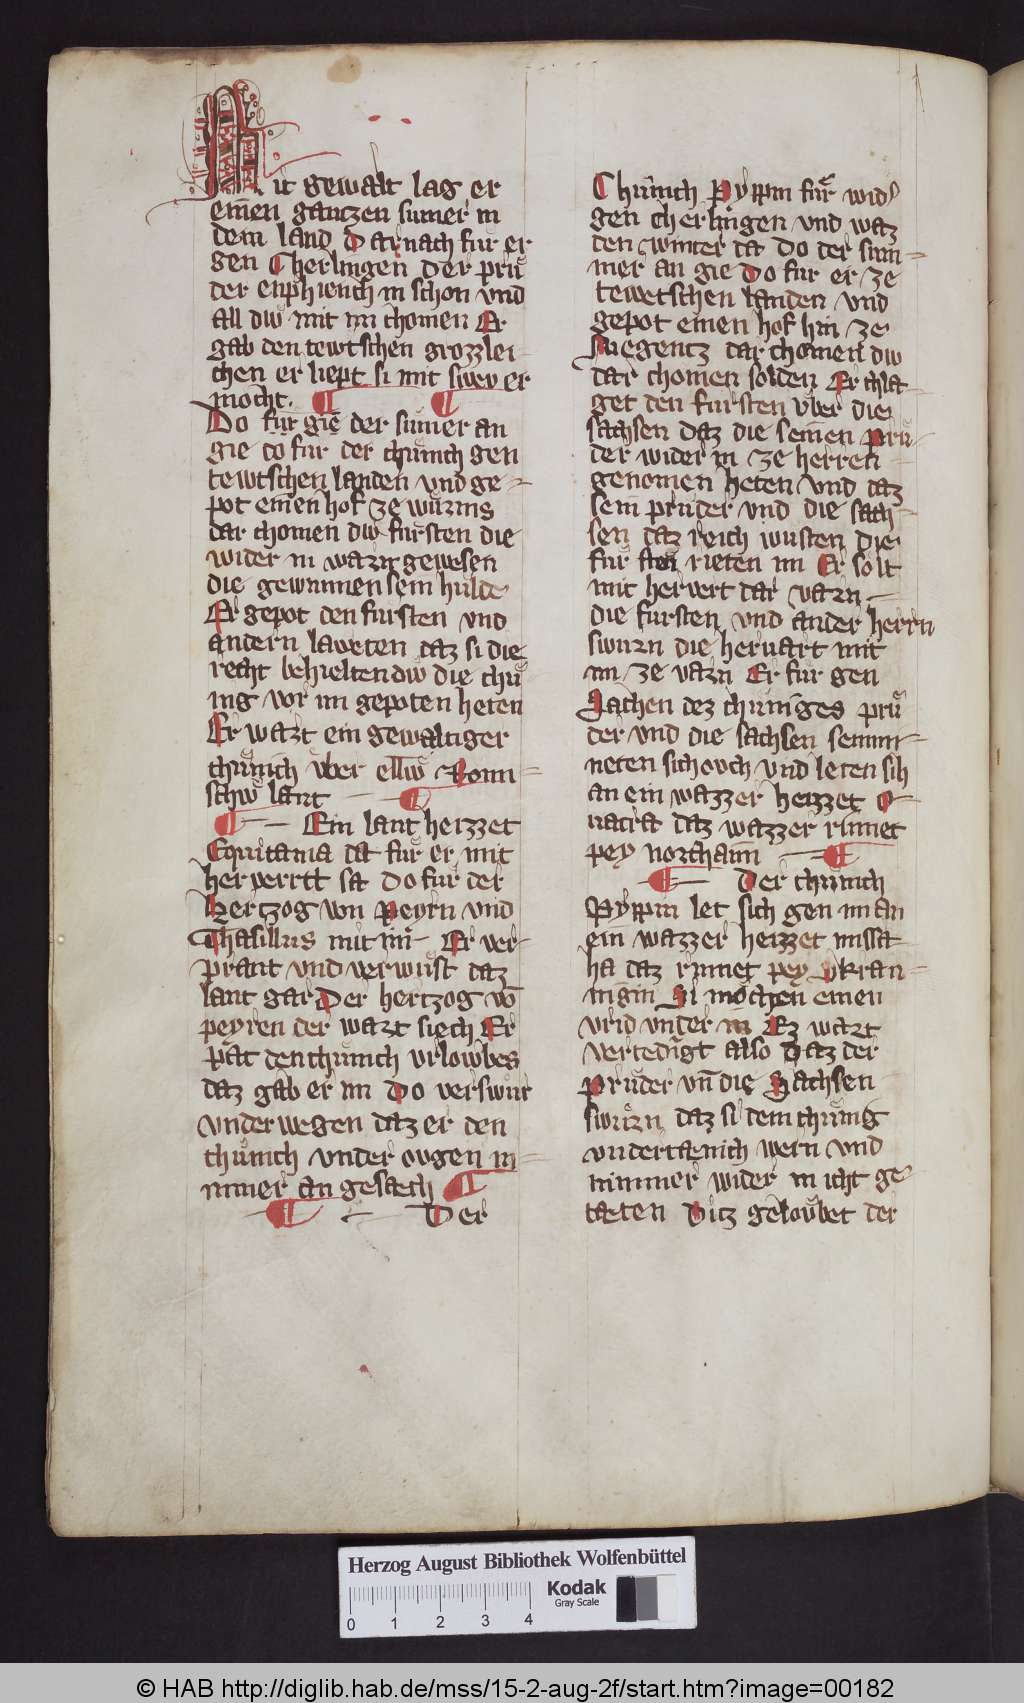 Mit gewalt lag er
einen gantzen sumer in
dem land Darnach fur er
gen Cherlingen Der pruͦ
der enphiench in schon vnd
all diw mit im chomen Er
gab den tewtschen grozzlei-
chen er liept si mit swev er
mocht.
Do fur gie der sumer an
gie do fur der chuͤnich gen
tewtschen landen vnd ge-
pot einen hof ze wuͤrms
dar chomen diw fuͤrsten die
wider in warn gewesen
die gewunnen sein hulde
Er gepot den fursten vnd
andern lawten daz si die
recht behielten diw die chuͤ
nig vor im gepoten heten
Er wart ein gewaltiger
chuͤnich vber elliw Romi-
schiw lant
Ein lant heizzet
Equitania da fuͤr er mit
herverttt sa Do fur der
hertzog von Peyrn vnd
Thasillus mit im Er ver-
prant vnd verwuͤst daz
lant gar Der hertzog vō
peyren der wart siech Er
pat den chuͤnich vrlowbes
daz gab er im Do verswuͤr
vnderwegen daz er den
chuͤnich vnder ougen in-
nimer an gesaech
Der
Chuͤnich Pyppin fur wider
gen cherlingen vnd waz
den winter da Do der sum-
mer an gie Do fur er ze
tewetschen landen vnd
gepot einen hof hin ze
Megentz dar chomen diw
dar chomen solden Er chla-
get den fursten vber die
sachsen daz die seinen pruͤ-
der wider in ze herren
genomen heten vnd daz
sein pruder vnd die sach-
sen daz reich wusten Die
fur rieten im Er solt
mit hervert dar varn
die fursten vnd ander herrn
swurn die heruart mit
im ze varn Er fur gen
Sachen dez chuniges pruͤ
der vnd die sachsen semni-
neten sich ovch vnd leten sih
an ein wazzer heizzet O-
vacra daz wazzer rinnet
pey northaim
Der chuͤnich
Pyppin let sich gen im an
ein wazzer heizzet missa
ha daz rinnet pey Vkran-
ingin Si mochten einen
vrid vnder in Ez wart
vertedingt also Daz der
pruͤder vn̄ die Sachsen
swuͤrn daz si dem chuͤnig
vndertaenich wern vnd
nimmer wider in icht ge
taeten Ditz geloubet der
Herzog August Bibliothek Wolfenbüttel
Kodak
Gray Scale
0 1 2 3 4
© HAB http://diglib.hab.de/mss/15-2-aug-2f/start.htm?image=00182